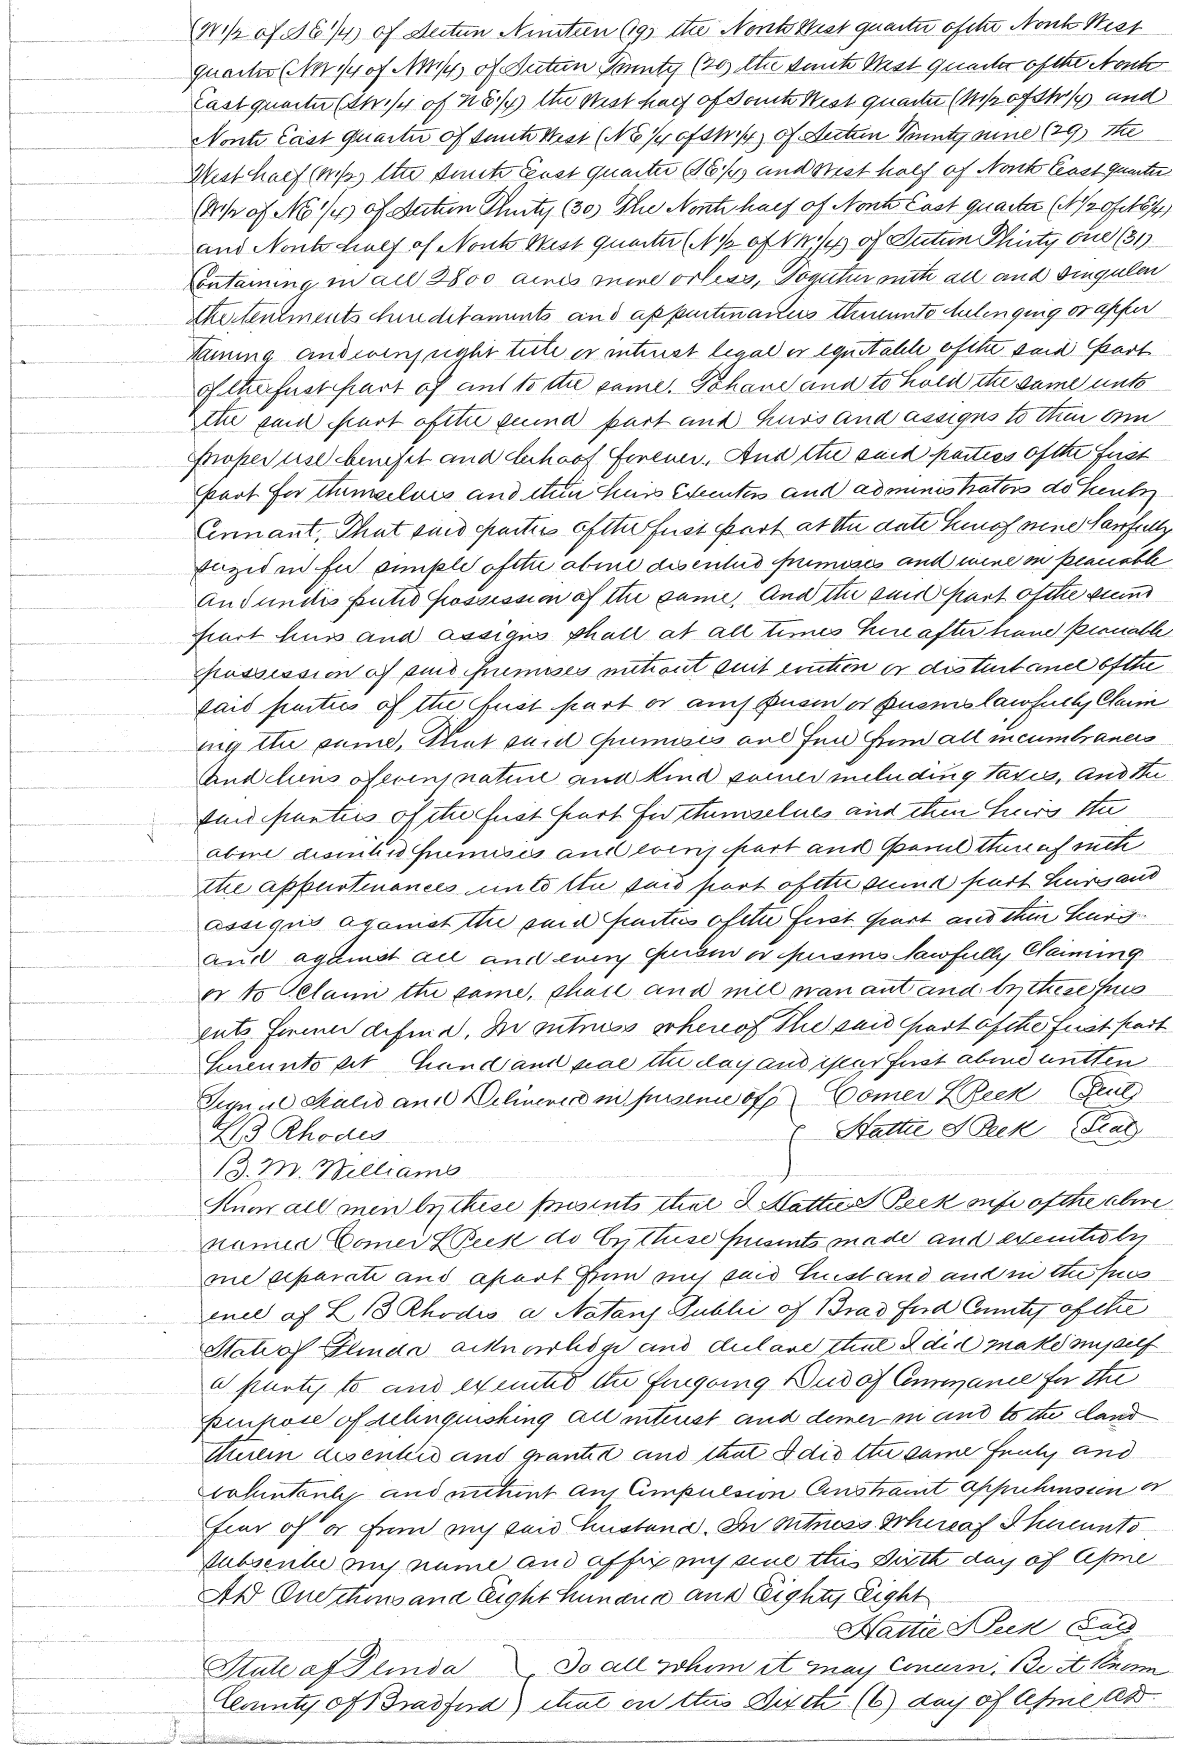 (W1/2 of SE 1/4) of Section Nineteen (19) the North West quarter of the North West
quarter (NW 1/4 of NW 1/4) of Section Twenty (20) the South West quarter of the North
East quarter (SW 1/4 of NE 1/4) the West half of South West quarter (W1/2 of SW 1/4) and
North East quarter of South West (NE 1/4 of SW 1/4) of Section Twenty nine (29) the
West half (W1/2) the South East quarter (SE 1/4) and West half of North East quarter
(W1/2 of NE 1/4) of Section Thirty (30) The North half of North East quarter (N1/2 of NE 1/4)
and North half of North West quarter (N1/2 of NW 1/4) of Section Thirty One (31)
Containing in all 2800 acres more or less, Together with all and singular
the tenements hereditaments and appurtenances thereunto belonging or apper
taining and every right title or interest legal or equitable of the said part
of the first part of and to the same. To have and to hold the same unto
the said part of the second part and heirs and assigns to their own
proper use benefit and behoof forever. And the said parties of the first
part for themselves and their heirs Executors and administrators do hereby
Covenant, That said parties of the first part at the date hereof were lawfully
seized in fee simple of the above described premises and were in peaceable
and undisputed possession of the same. And the said part of the second
part heirs and assigns shall at all times here after have peaceable
possession of said premises without suit eviction or disturbance of the
said parties of the first part or any person or persons lawfully Claim
ing the same, That said premises are free from all incumbrances
and liens of every nature and kind soever including taxes, and the
said parties of the first part for themselves and their heirs the
above described premises and every part and parcel thereof with
the appurtenances unto the said part of the second part heirs and
assigns against the said parties of the first part and their heirs
and against all and every person or persons lawfully Claiming
or to Claim the same, shall and will warrant and by these pres
ents forever defend. In witness whereof The said part of the first part
hereunto set hand and seal the day and year first above written
Signed Sealed and Delivered in presence of } Comer L Peek (Seal)
L B Rhodes { Hattie S Peek (Seal)
B. M. Williams
Know all men by these presents that I Hattie S Peek wife of the above
named Comer L Peek do by these presents made and executed by
me separate and apart from my said husband and in the pres
ence of L B Rhodes a Notary Public of Bradford County of the
State of Florida acknowledge and declare that I did make myself
a party to and executed the foregoing Deed of Conveyance for the
purpose of relinquishing all interest and dower in and to the land
therein described and granted and that I did the same freely and
voluntarily and without any Compulsion Constraint apprehension or
fear of or from my said husband. In witness whereof I hereunto
subscribe my name and affix my seal this Sixth day of April
AD One thousand Eight hundred and Eighty Eight
Hattie S Peek Seal
State of Florida } To all whom it may Concern; Be it Known
County of Bradford ) that on this Sixth (6) day of April AD.